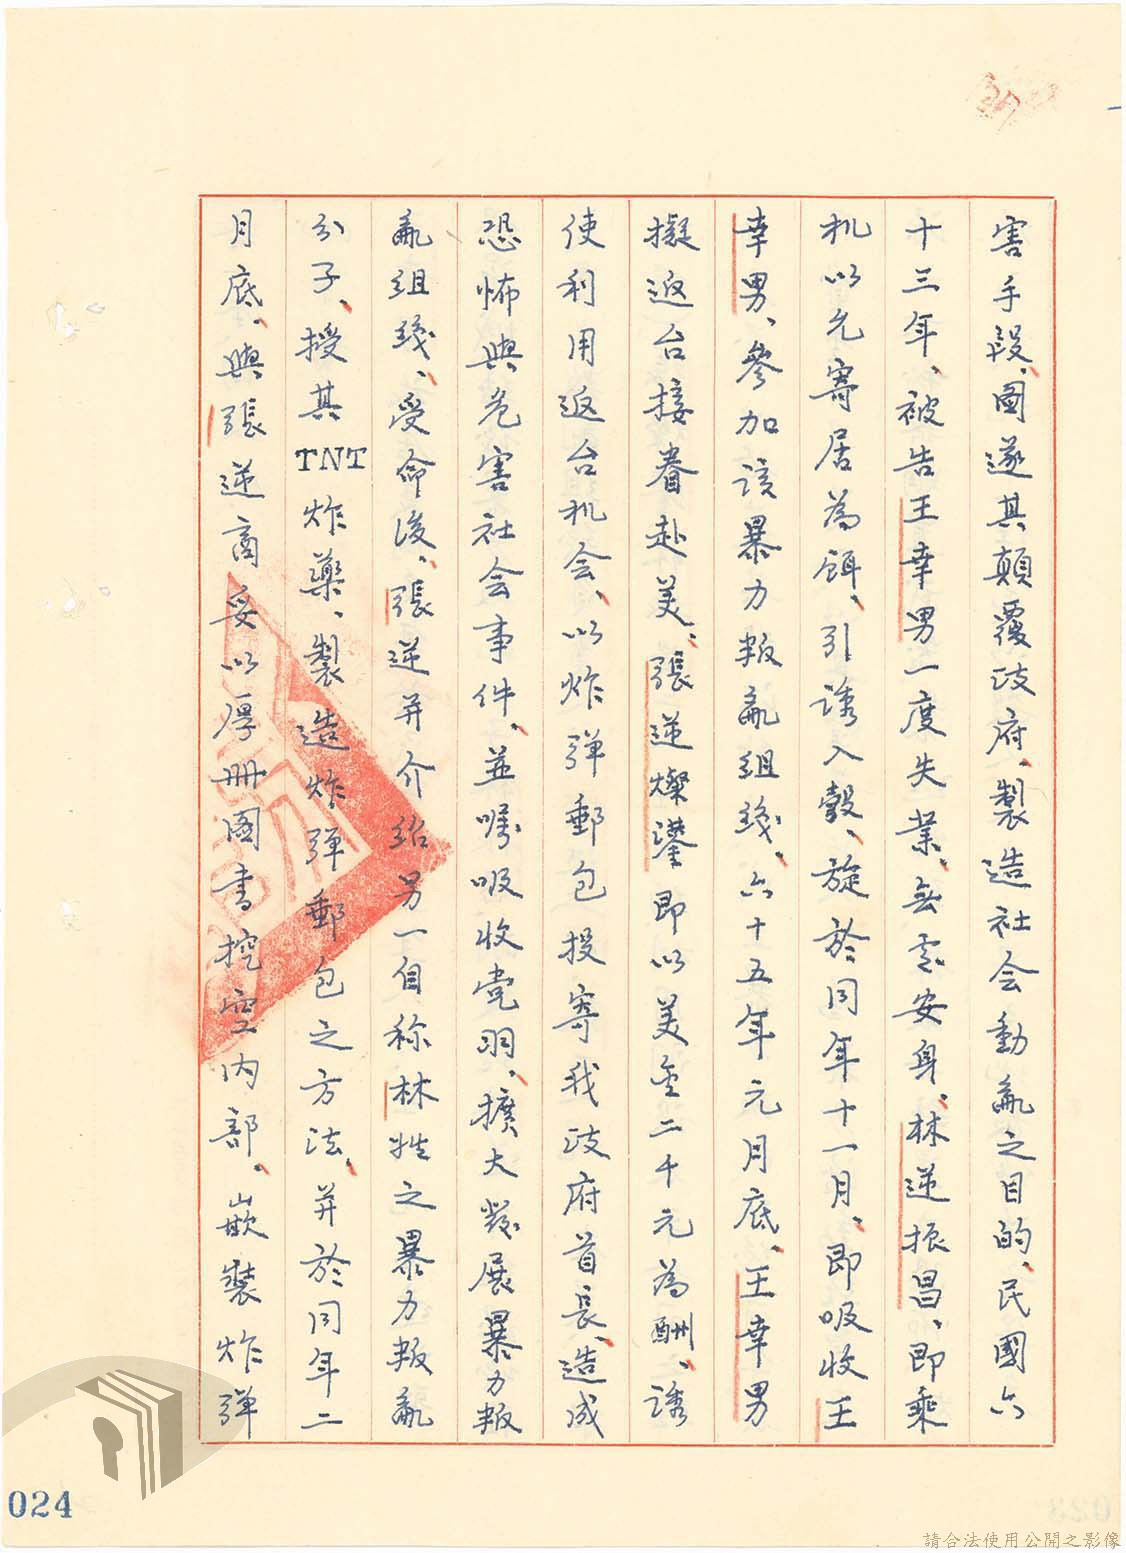 害手段、圖遂其顛覆政府、製造社会動亂之目的、民國六
十三年、被告王幸男一度失業、無處安身、林逆振昌、即乘
机以允寄居為餌、引誘入彀、旋於同年十一月、即吸收王
幸男、參加該暴力叛亂組織、六十五年元月底、王幸男
擬返台接眷赴美、張逆燦鍙即以美金二千元為酬、誘
使利用返台机会、以炸弹郵包投寄我政府首長、造成
恐怖與危害社会事件、並嘱吸收党羽、擴大發展暴力叛
亂組織、受命後、張逆并介紹另一自称林姓之暴力叛亂
分子、授其TNT炸藥、製造炸弹郵包之方法、并於同年二
月底、與張逆商妥以厚册圖書挖空内部、嵌裝炸弹
024
請合法使用公開之影像